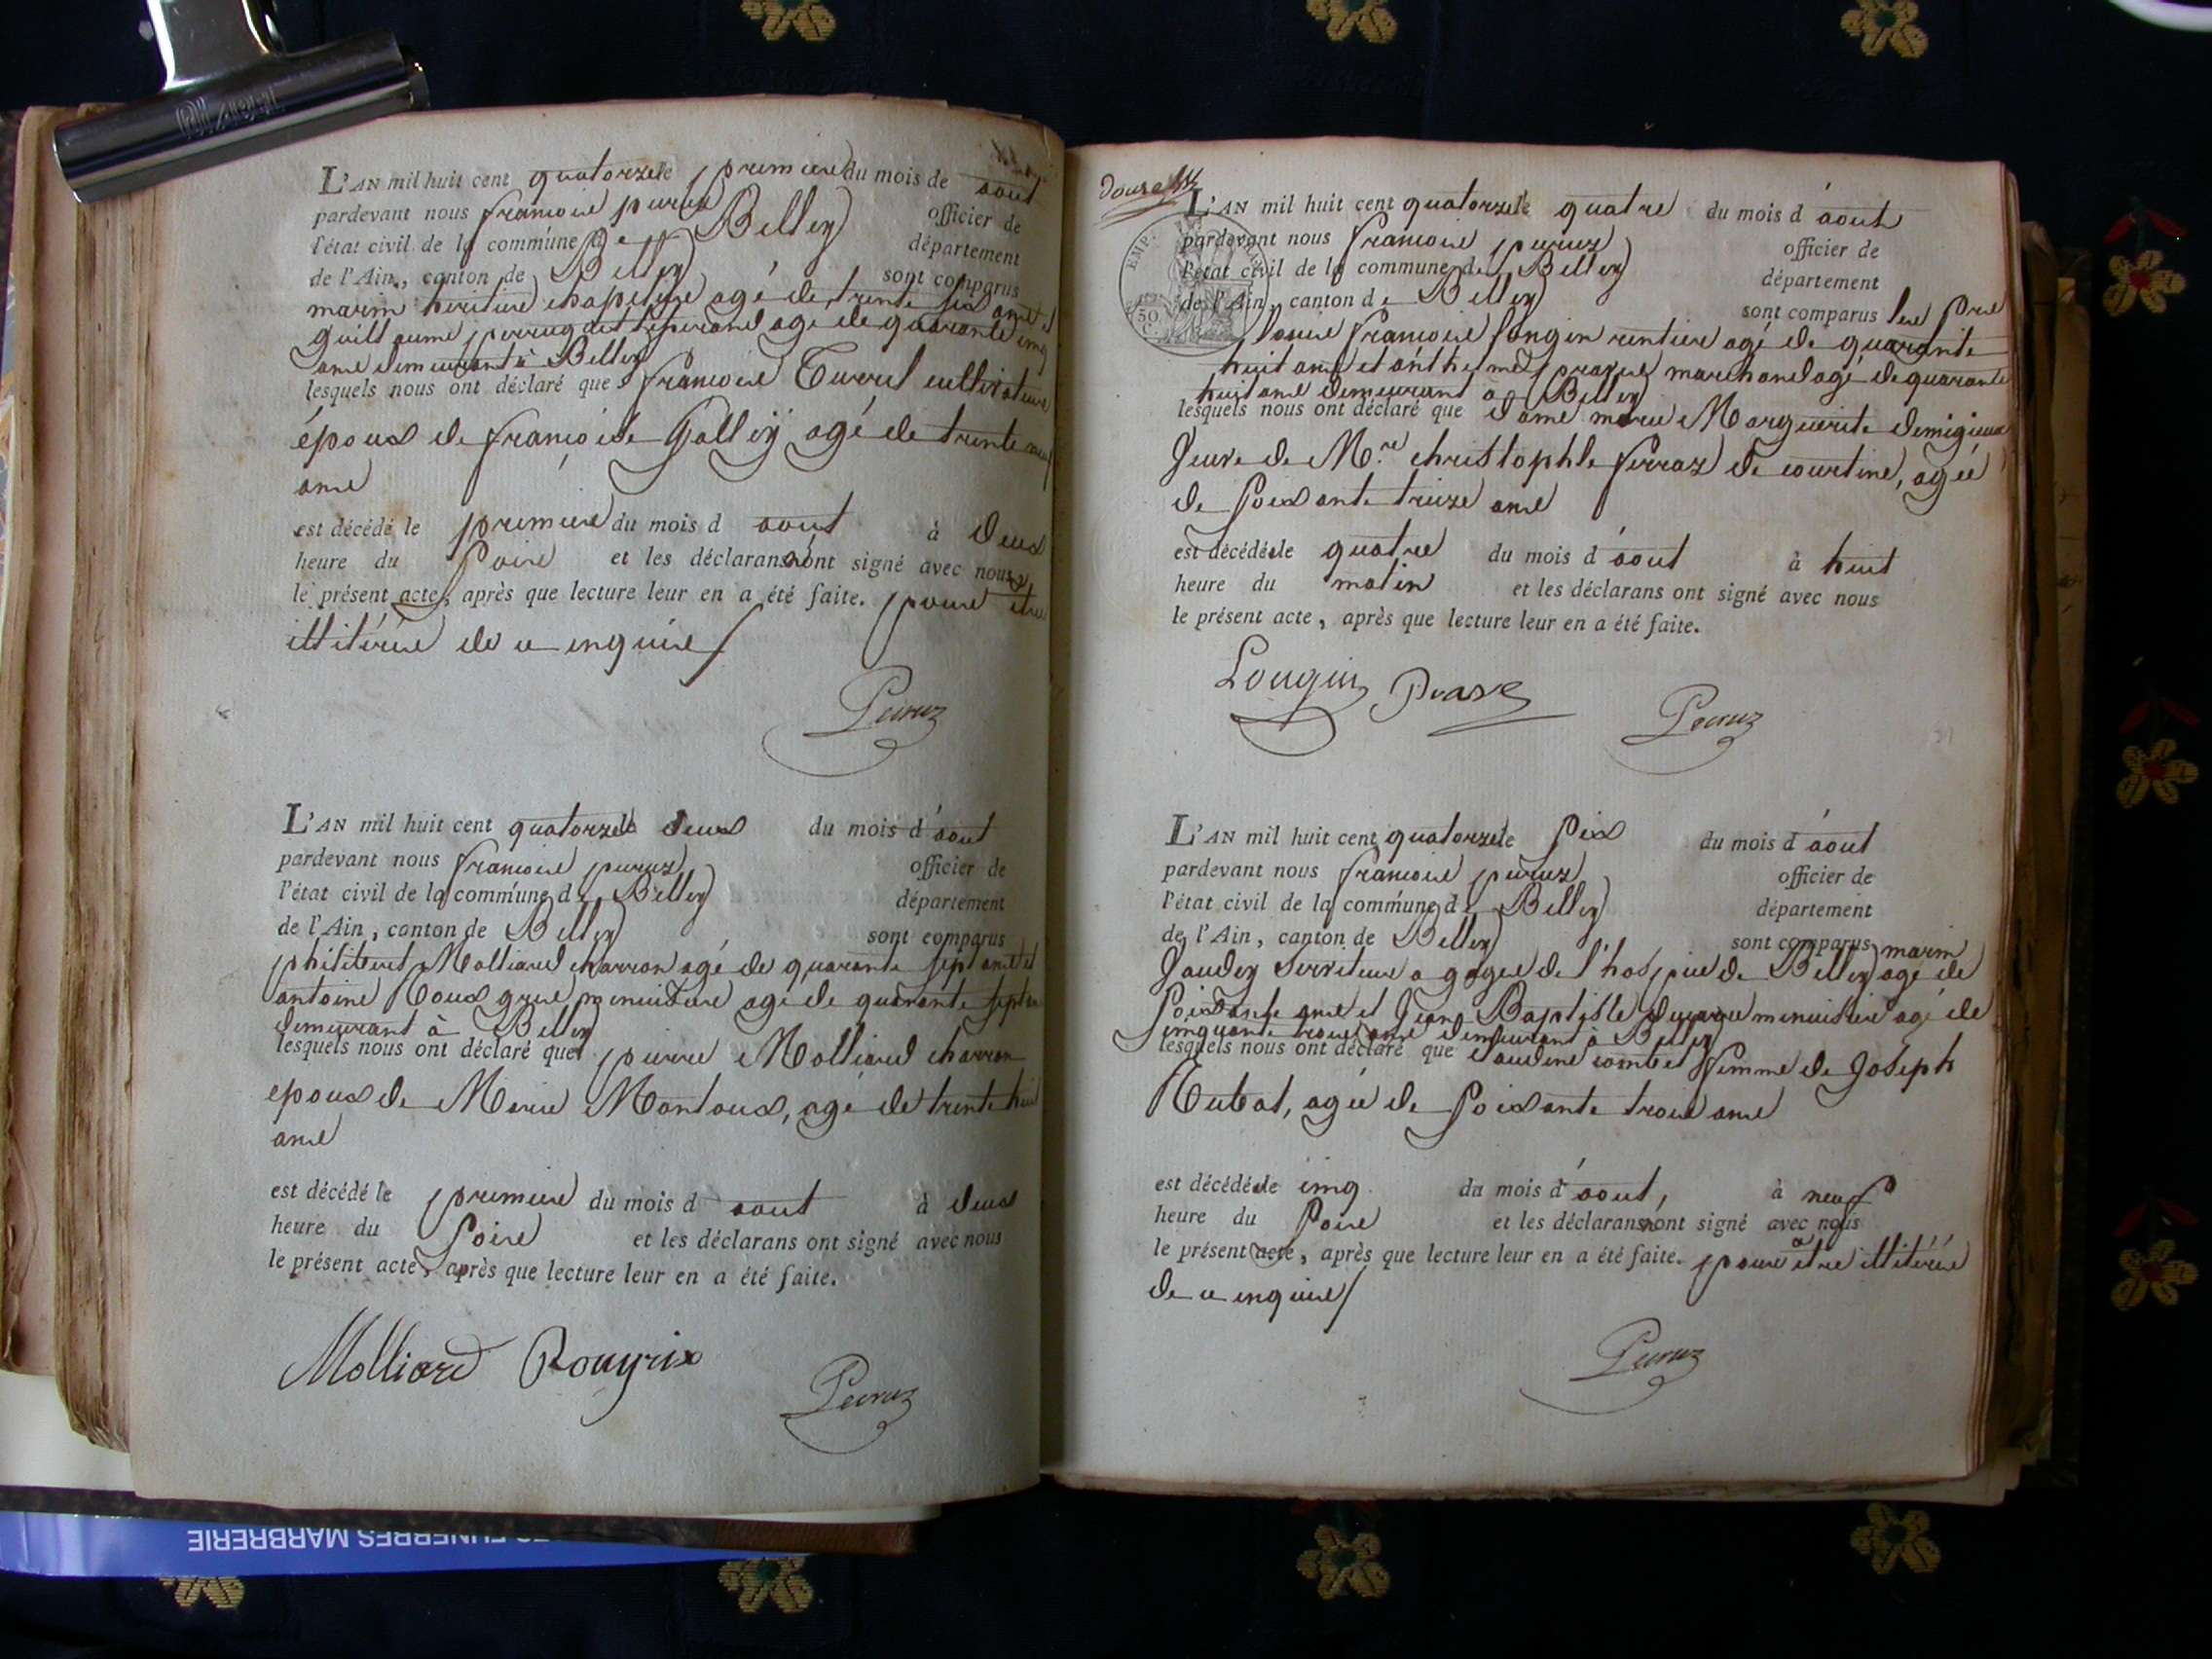 L'AN mil huit cent quatorze le premier du mois de aout
pardevant nous francois peruz officier de
l'état civil de la commune de Belley département
de l'Ain, canton de Belley sont comparus
marin chapelier agé de trente six ans et
guillaume perruquet tisserand agé de quarante cinq
ans demeurant à Belley
lesquels nous ont déclaré que francois Turrel cultivateur
époux de francoise Golley agé de trente neuf
ans
est décédé le premier du mois d aout à deux
heure du soir et les déclarans ont signé avec nous
le présent acte, après que lecture leur en a été faite. pour etre
illitéré de ce enquis
Peruz
L'AN mil huit cent quatorze le deux du mois d'aout
pardevant nous francois peruz officier de
l'état civil de la commune de Belley département
de l'Ain, canton de Belley sont comparus
philibert Molliard charron agé de quarante sept ans et
antoine Rouxgrie menuisier agé de quarante sept ans
demeurant à Belley
lesquels nous ont déclaré que pierre Molliard charron
epoux de Marie Montoux, agé de trente huit
ans
est décédé le premier du mois d aout à deux
heure du soir et les déclarans ont signé avec nous
le présent acte, après que lecture leur en a été faite.
Molliard Rougrix
Peruz
douze
EMP.
50
C.
L'AN mil huit cent quatorze le quatre du mois d'aout
pardevant nous francois peruz officier de
l'état civil de la commune de Belley département
de l'Ain, canton de Belley sont comparus les Srs
louis francois longin rentier agé de quarante
huit ans et anthelme prave marchand agé de quarante
huit ans demeurant à Belley
lesquels nous ont déclaré que dame marie Marguerite demigieux
veuve de M.re christophle ferraz de courtine, agée
de soixante treize ans
est décédée le quatre du mois d'aout à huit
heure du matin et les déclarans ont signé avec nous
le présent acte, après que lecture leur en a été faite.
Longin Prave
Peruz
L'AN mil huit cent quatorze le six du mois d'aout
pardevant nous francois peruz officier de
l'état civil de la commune de Belley département
de l'Ain, canton de Belley sont comparus marin
Jaudey serviteur a gages de l'hospice de Belley agé de
soixante ans et Jean Baptiste menuisier agé de
cinquante trois ans demeurant à Belley
lesquels nous ont déclaré que claudine combet femme de Joseph
Rubat, agée de soixante trois ans
est décédée le cinq du mois d'aout, à neuf
heure du soir et les déclarans n'ont signé avec nous
le présent acte, après que lecture leur en a été faite. pour etre illitéré
de ce enquis
Peruz
FUNEBRES MARBRERIE